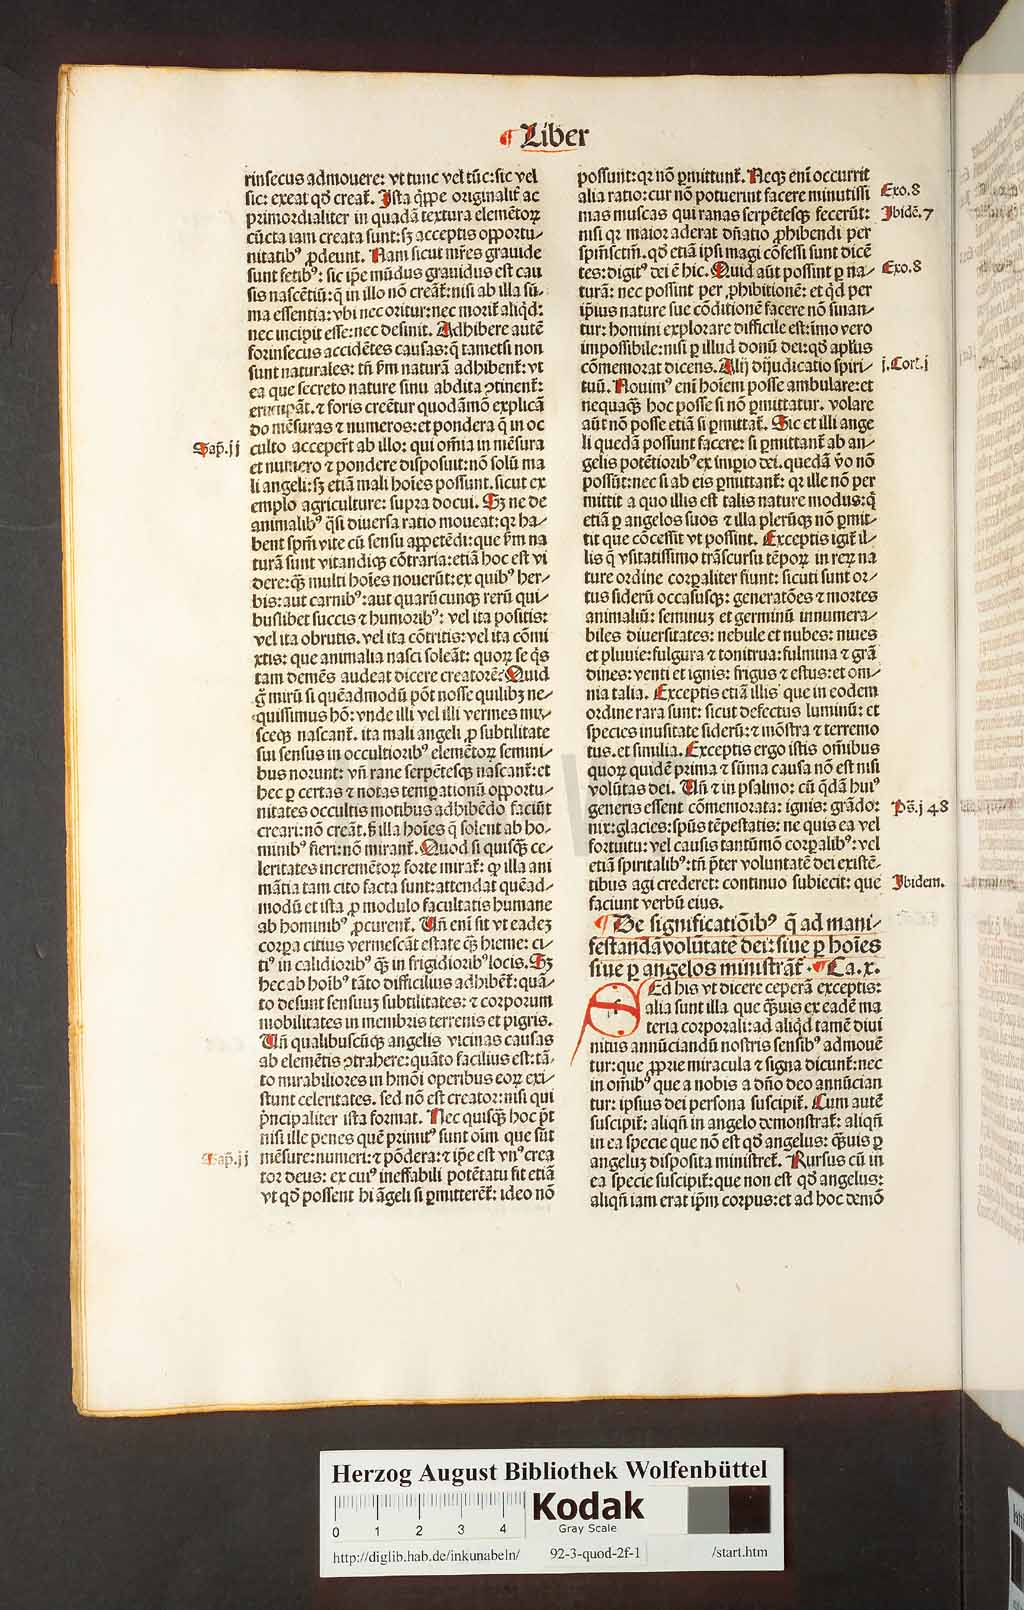 ¶ Liber
rinsecus admouere: vt tunc vel tūc: sic vel
sic: exeat qḋ creat̄. Ista q̄ppe originalit̄ ac
primordialiter in quadā textura elemētoꝝ
cūcta iam creata sunt: sꝫ acceptis opportu⸗
nitatibꝰ ꝓdeunt. Nam sicut mr̄es grauide
sunt fetibꝰ: sic ip̄e mūdus grauidus est cau
sis nascētiū: q̄ in illo nō creāt̄: nisi ab illa sū⸗
ma essentia: vbi nec oritur: nec morit̄ aliqd:
nec incipit esse: nec desinit. Adhibere autē
forinsecus accidētes causas: q̄ tametsi non
sunt naturales: tn̄ ẜm naturā adhibent̄: vt
ea que secreto nature sinu abdita ꝯtinent̄:
erumpāt. ⁊ foris creētur quodāmō explicā
do mēsuras ⁊ numeros: et pondera q̄ in oc
Sap̄. ij
culto acceper̄t ab illo: qui om̄ia in mēsura
et numero ⁊ pondere disposuit: nō solū ma
li angeli: sꝫ etiā mali hoīes possunt. sicut ex
emplo agriculture: supra docui. Sꝫ ne de
animalibꝰ q̄si diuersa ratio moueat: qꝛ ha⸗
bent spm̄ vite cū sensu appetēdi: que ẜm na
turā sunt vitandiqꝫ cōtraria: etiā hoc est vi
dere: qꝫ̄ multi hoīes nouerūt: ex quibꝰ her⸗
bis: aut carnibꝰ: aut quarū cunqꝫ rerū qui⸗
buslibet succis ⁊ humoribꝰ: vel ita positis:
vel ita obrutis. vel ita cōtritis: vel ita cōmi
xtis: que animalia nasci soleāt: quoꝝ se q̄s
tam demēs audeat dicere creatorē? Quid
g̊ mirū si quēadmodū pōt nosse quilibꝫ ne⸗
quissimus hō: vnde illi vel illi vermes mu⸗
sceqꝫ nascant̄. ita mali angeli ꝓ subtilitate
sui sensus in occultioribꝰ elemētoꝝ semini⸗
bus norunt: vn̄ rane serpētesqꝫ nascant̄: et
hec ꝑ certas ⁊ notas temꝑationū opportu⸗
nitates occultis motibus adhibēdo faciūt
creari: nō creāt. ẜ illa hoīes q̄ solent ab ho⸗
minibꝰ fieri: nō mirant̄. Quod si quisqꝫ̄ ce⸗
leritates incremētoꝝ forte mirat̄: ꝙ illa ani
mātia tam cito facta sunt: attendat quēad⸗
modū et ista ꝓ modulo facultatis humane
ab hominibꝰ ꝓcurent̄. Vn̄ enī fit vt eadeꝫ
corꝑa citius vermescāt estate qꝫ̄ hieme: ci⸗
tiꝰ in calidioribꝰ qꝫ̄ in frigidioribꝰ locis. Sꝫ
hec ab hoībꝰ tāto difficilius adhibēt̄: quā⸗
to desunt sensuuꝫ subtilitates: ⁊ corporum
mobilitates in membris terrenis et pigris.
Vn̄ qualibuscūqꝫ angelis vicinas causas
ab elemētis ꝯtrahere: quāto facilius est: tā⸗
to mirabiliores in hmōi operibus eoꝝ exi⸗
stunt celeritates. sed nō est creator: nisi qui
p̄ncipaliter ista format. Nec quisqꝫ̄ hoc p̄t
nisi ille penes quē primitꝰ sunt oīm que sūt
Sap̄. ij
mēsure: numeri: ⁊ pōdera: ⁊ ip̄e est vnꝰ crea
tor deus: ex cuiꝰ ineffabili potētatu fit etiā
vt qḋ possent hi āgeli si ꝑmitterēt̄: ideo nō
possunt: qꝛ nō ꝑmittunt̄. Neqꝫ enī occurrit
alia ratio: cur nō potuerint facere minutissi
Exo. 8
mas muscas qui ranas serpētesqꝫ fecerūt:
Ibidē. 7
nisi qꝛ maior aderat dn̄atio ꝓhibendi per
spm̄sctm̄. qḋ etiā ipsi magi cōfessi sunt dicē
tes: digitꝰ dei ē hic. Quid aūt possint ꝑ na⸗
Exo. 8
turā: nec possint per ꝓhibitionē: et qd per
ip̄ius nature sue cōditionē facere nō sinan⸗
tur: homini explorare difficile est: imo vero
impossibile: nisi ꝑ illud donū dei: qḋ apl̄us
cōmemorat dicens. Alij dijudicatio spiri⸗
j. Cor̄. j
tuū. Nouimꝰ enī hoīem posse ambulare: et
nequaqꝫ̄ hoc posse si nō ꝑmittatur. volare
aūt nō posse etiā si ꝑmittat̄. Sic et illi ange
li quedā possunt facere: si ꝑmittant̄ ab an⸗
gelis potētioribꝰ ex imꝑio dei. quedā v̊o nō
possūt: nec si ab eis ꝑmittant̄: qꝛ ille nō per
mittit a quo illis est talis nature modus: q̄
etiā ꝑ angelos suos ⁊ illa plerūqꝫ nō ꝑmit⸗
tit que cōcessit vt possint. Exceptis igit̄ il⸗
lis q̄ vsitatissimo trāscursu tēpoꝝ in reꝝ na
ture ordine corꝑaliter fiunt: sicuti sunt or⸗
tus siderū occasusqꝫ: generatōes ⁊ mortes
animaliū: seminuꝫ et germinū innumera⸗
biles diuersitates: nebule et nubes: niues
et pluuie: fulgura ⁊ tonitrua: fulmina ⁊ grā
dines: venti et ignis: frigus ⁊ estus: et om⸗
nia talia. Exceptis etiā illis que in eodem
ordine rara sunt: sicut defectus luminū: et
species inusitate siderū: ⁊ mōstra ⁊ terremo
tus. et similia. Exceptis ergo istis om̄ibus
quoꝝ quidē prima ⁊ sūma causa nō est nisi
volūtas dei. Vn̄ ⁊ in psalmo: cū q̄dā huiꝰ
generis essent cōmemorata: ignis: grādo:
Ps̄. j 48
nix: glacies: spūs tēpestatis: ne quis ea vel
fortuitu: vel causis tantūmō corꝑalibꝰ: vel
etiā spiritalibꝰ: tn̄ p̄ter voluntatē dei existē⸗
tibus agi crederet: continuo subiecit: que
Ibidem.
faciunt verbū eius.
¶ De significatiōibꝰ q̄ ad mani⸗
festandā volūtatē dei: siue ꝑ hoīes
siue ꝑ angelos ministrāt̄. ¶ Ca. x.
SEd his vt dicere ceperā exceptis:
alia sunt illa que qꝫ̄uis ex eadē ma
teria corporali: ad aliqd tamē diui
nitus annūciandū nostris sensibꝰ admouē
tur: que ꝓprie miracula ⁊ signa dicunt̄: nec
in om̄ibꝰ que a nobis a dn̄o deo annūcian
tur: ipsius dei persona suscipit̄. Cum autē
suscipit̄: aliqn̄ in angelo demonstrat̄: aliqn̄
in ea specie que nō est qḋ angelus: qꝫ̄uis ꝑ
angeluꝫ disposita ministret̄. Rursus cū in
ea specie suscipit̄: que non est qḋ angelus:
aliqn̄ iam erat ip̄m corpus: et ad hoc demō
Herzog August Bibliothek Wolfenbüttel
0 1 2 3 4
Kodak
Gray Scale
http://diglib.hab.de/inkunabeln/ 92-3-quod-2f-1 /start.htm